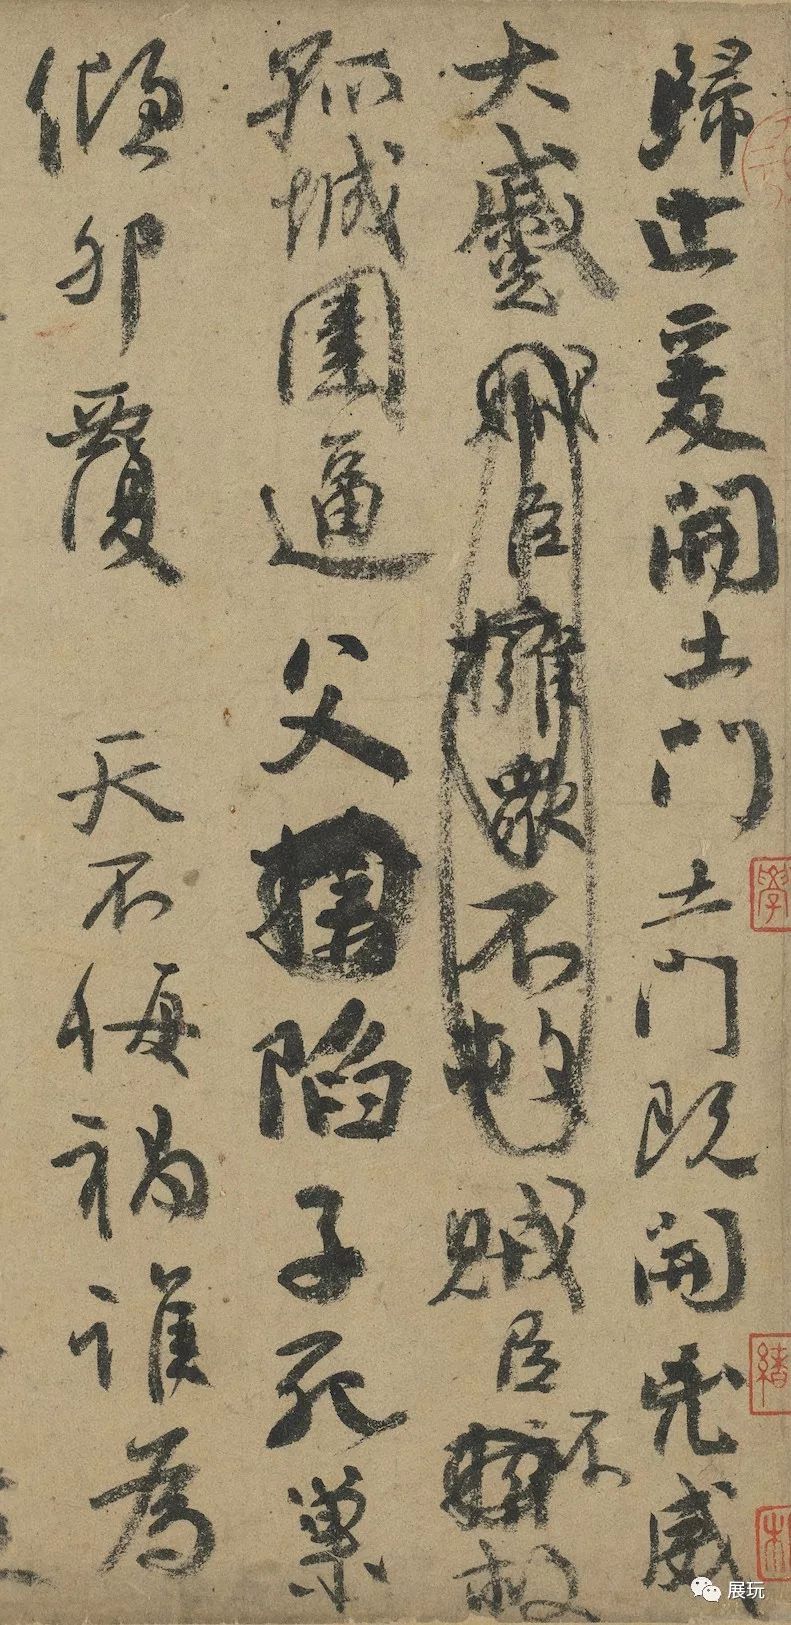 歸止爰開土門土門既開兇威
大蹙賊臣擁衆不救賊臣不救
孤城圍逼父陷子死巢
傾卵覆 天不悔禍誰為
展玩